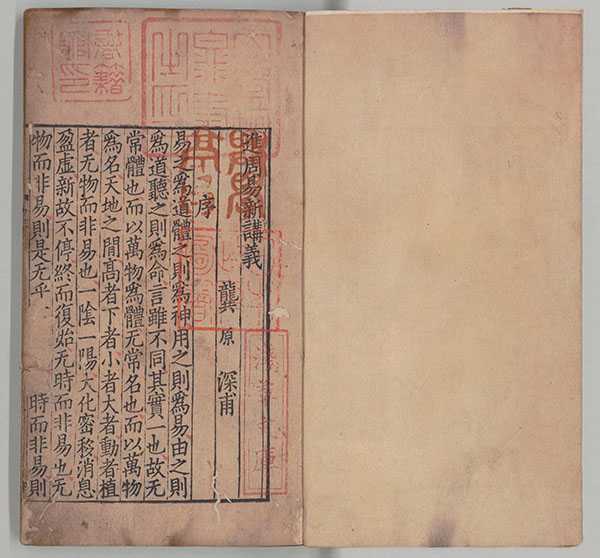 進周易新講義
龔原 深甫
序
易之爲道體之則爲神用之則爲易由之則
爲道聽之則爲命言雖不同其實一也故无
常體也而以萬物爲體无常名也而以萬物
爲名天地之間髙者下者小者大者動者植
者无物而非易也一陰一陽大化密移消息
盈虚新故不停終而復始无時而非易也无
物而非易則是无乎 時而非易則
淺草文庫